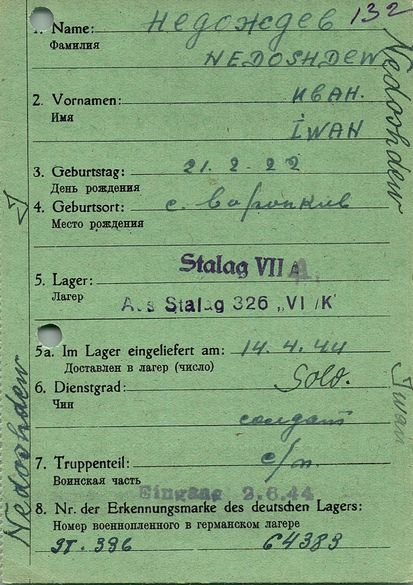 132
1. Name: Недождев
Фамилия
NEDOSHDEW
2. Vornamen: Иван.
Имя
IWAN
3. Geburtstag: 21.2.22
День рождения
4. Geburtsort: с.
Место рождения
Stalag VII A
5. Lager:
Лагер
Aus Stalag 326 „VI/K"
5a. Im Lager eingeliefert am: 14.4.44
Доставлен в лагер (число)
6. Dienstgrad: Sold.
Чин
солдат
7. Truppenteil: с/п
Воинская часть
Eingang 2.6.44
8. Nr. der Erkennungsmarke des deutschen Lagers:
Номер военнопленного в германском лагере
64383
Nedoshdew
Iwan
Nedoshdew
J